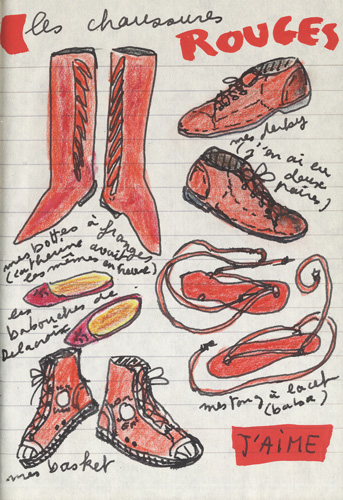 les chaussures
ROUGES
mes derby
(j'en ai eu
deux
paires)
mes bottes à franges
(catherine avait
les mêmes en
les
babouches de
Delacroix
mes tong à lacet
(bata)
mes basket
J'AIME